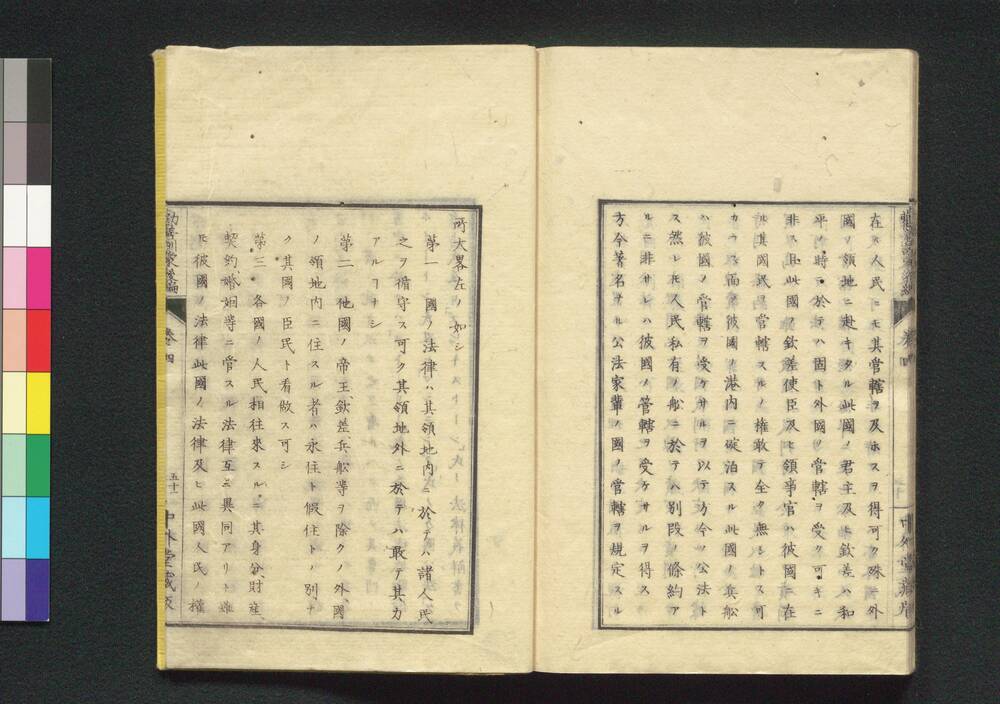 在ス人民ニモ其管轄ヲ及ホスヲ得可ク殊ニ外
國ノ領地ニ赴キタル此國ノ君主及ヒ欽差ハ和
平ノ時ニ於テハ固ト外國ノ管轄ヲ受ク可キニ
非ス且此國ノ欽差使臣及ヒ領事官ハ彼國ニ在
ル其國民ヲ管轄スルノ権敢テ全ク無シトス可
カラス而〆彼國ノ港内ニ碇泊スル此國ノ兵舩
ハ彼國ノ管轄ヲ受ケサルヲ以テ方今ノ公法ト
ス然レ𪜈人民私有ノ舩ニ於テハ別段ノ條約ア
ルニ非サレハ彼國ノ管轄ヲ受ケサルヲ得ス
方今著名ナル公法家輩ノ國ノ管轄ヲ規定スル
所大畧左ノ如シ
第一 國ノ法律ハ其領地内ニ於テハ諸人民
之ヲ循守ス可ク其領地外ニ於テハ敢テ其力
アルヿナシ
第二 他國ノ帝王、欽差兵舩等ヲ除クノ外、國
ノ領地内ニ住スル者ハ永住ト假住トノ別ナ
ク其國ノ臣民ト看做ス可シ
第三 各國ノ人民相往來スルニ其身分、財産、
契約、婚姻等ニ管スル法律互ニ異同アリト雖
𪜈彼國ノ法律此國ノ法律及ヒ此國人民ノ權
卷四
五十二
中外堂藏版